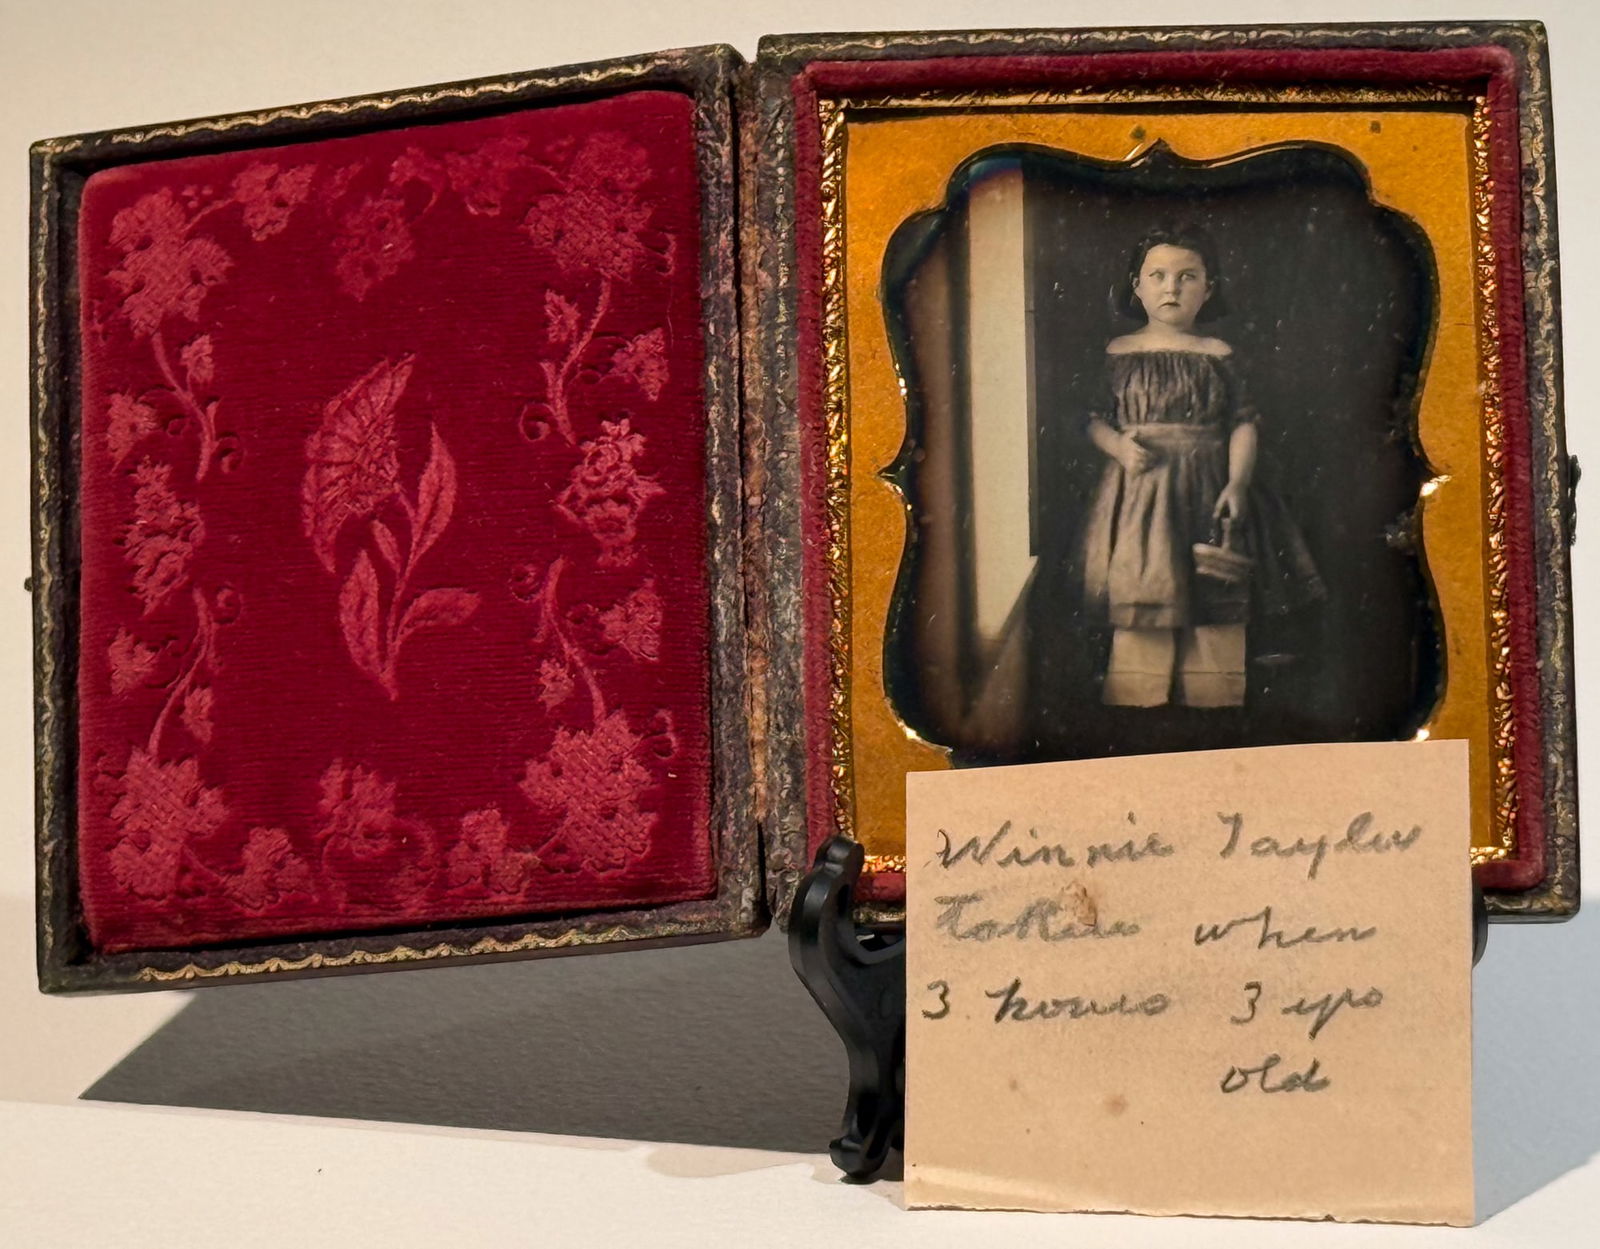 Winnie Taylor
Taken when
3 hours 3 yrs
old